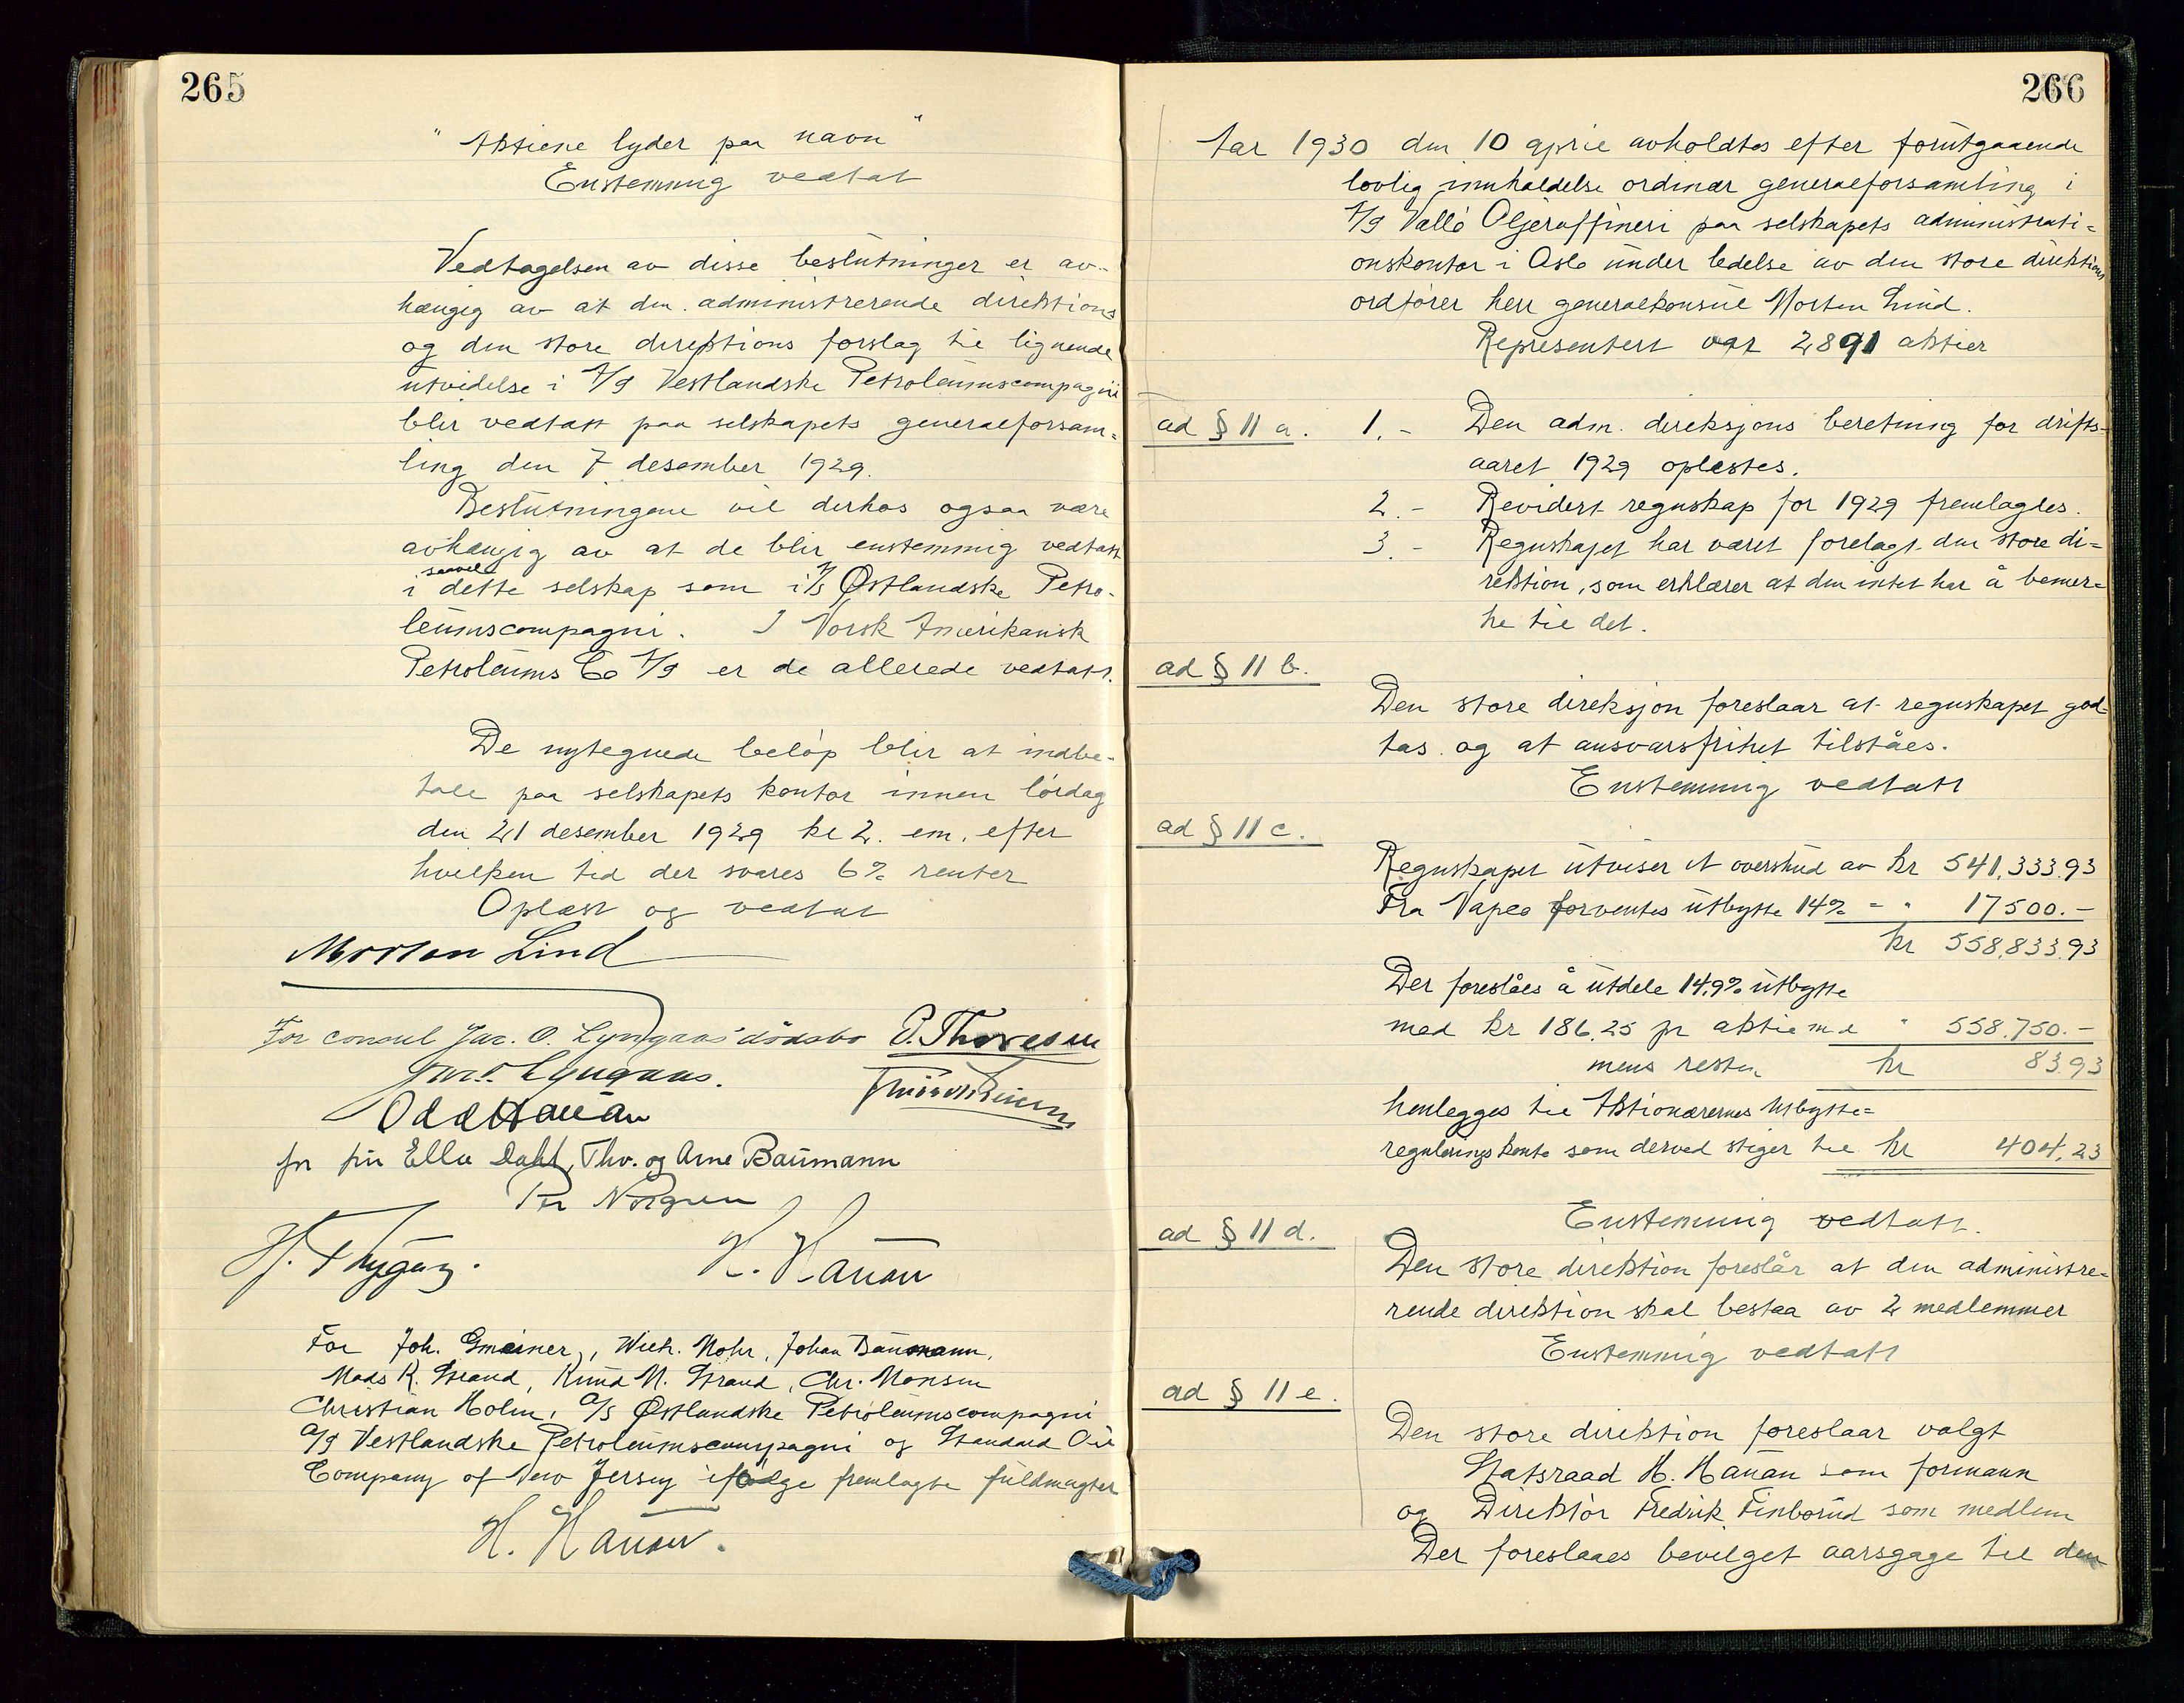 265
"Aktiene lyder paa navn"
Enstemmig vedtat
Vedtagelsen av disse beslutninger er av-
hængig av at den administrerende direktions
og den store direktions forslag til lignende
utvidelse i A/S Vestlandske Petroleumscompagni
blir vedtatt paa selskapets generalforsam=
ling den 7 desember 1929.
Beslutningene vil derhos ogsaa være
avhængig av at de blir enstemmig vedtatt
saavel
i dette selskap som i A/S Østlandske Petro-
leumscompagni. I Norsk Amerikansk
Petroleums Co A/S er de allerede vedtatt.
De nytegnede beløp blir at indbe-
tale paa selskapets kontor innen lørdag
den 21 desember 1929 kl 2. em. efter
hvilken tid der svares 6% renter
Oplæst og vedtat
Morten Lind
For consul Jac. O. Lyngaas' dødsbo O. Thoresen
Jac. Lyngaas.
Odd Hauan
for fru Ella Dahl, Thv. og Arne Baumann
Per Norgren
H. Hauan
For Joh. Gmeiner, Wilh. Mohr, Johan Baumann,
Mads K. Strand, Knud M. Strand, Chr. Monsen
Christian Holm, A/S Østlandske Petroleumscompagni
A/S Vestlandske Petroleumscompagni og Standard Oil
Company of New Jersey ifølge fremlagte fuldmagter
H. Hauan.
266
Aar 1930 den 10 april avholdtes efter forutgaaende
lovlig innkaldelse ordinær generalforsamling i
A/S Vallö Oljeraffineri paa selskapets administrati=
onskontor i Oslo under ledelse av den store direktions
ordfører herr generalkonsul Morten Lind.
Representert var 2891 aktier
ad § 11 a. 1.- Den adm. direksjons beretning for drifts-
aaret 1929 oplestes.
2.- Revidert regnskap for 1929 fremlagdes.
3.- Regnskapet har været forelagt den store di=
rektion, som erklærer at den intet har å bemer=
ke til det.
ad § 11 b.
Den store direksjon foreslaar at regnskapet god-
tas og at ansvarsfrihet tilståes.
Enstemmig vedtatt
ad § 11 c.
Regnskapet utviser et overskud av kr 541,333.93
Fra Vapeo forventes utbytte 14% = " 17500.-
kr 558,833.93
Der foreslåes å utdele 14,9% utbytte
med kr 186,25 pr aktie m.d " 558,750.-
mens resten kr 83.93
henlegges til Aktionærernes Utbytte=
regulerings konto som derved stiger til kr 404,23
Enstemmig vedtatt.
ad § 11 d.
Den store direktion foreslår at den administre=
rende direktion skal bestaa av 2 medlemmer
Enstemmig vedtatt
ad § 11 e.
Den store direktion foreslaar valgt
Statsraad H. Hauan som formann
og Direktør Fredrik Finborud som medlem
Der foreslaaes bevilget aarsgage til den